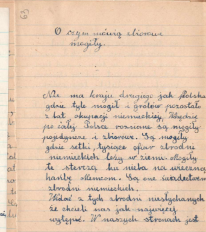 O czym mówią zbiorowe
mogiły.
Nie ma kraju drugiego jak Polska
gdzie tyle mogił i grobów pozostało
z lat okupacji niemieckiej. Wzdłuż
po całej Polsce rozsiane są mogiły
pojedyncze i zbiorowe. Są mogiły
gdzie setki, tysiące ofiar zbrodni
niemieckich leży w ziemi. Mogiły
te sterczą ku niebu na wieczną
hańbę Niemcom. Są one świadectwem
zbrodni niemieckich.
Widać z tych zbrodni niesłychanych
że chcieli nas jak najwięcej
wytępić. W naszych stronach jest